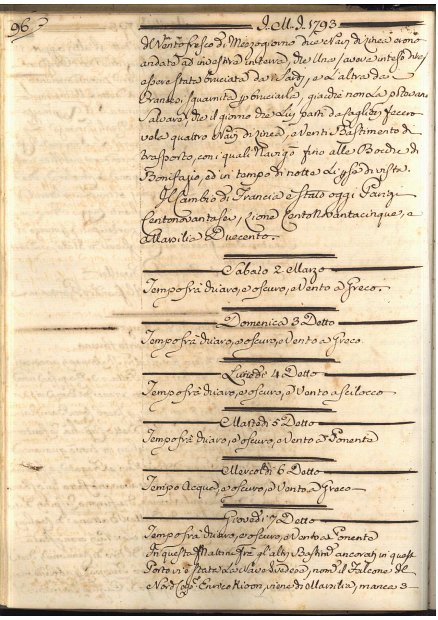 96.
J. M. J. 1793
di Vento fresco di Mezzogiorno dice Navi di Linea erano
andate ad investire in terra, che Una, aveva inteso dire
essere stata bruciata da Sardi, e L'altra da
Francesi, squarnita p bruciarla, giacchè non La potevano
salvare, che il giorno che Lui partì da Cagliari fecero
vela quattro Navi di Linea, e Venti Bastimenti di
trasporto, con i quali Navigò fino alle Bocche di
Bonifazio, ed in tempo di notte Li p̱se di vista.
Il Cambio di Francia è stato oggi Parigi
Centonovantasei, Lione CentoNovantacinque, e
a Marsilia Duecento.
Sabato 2 Marzo
Tempo frà chiaro, e oscuro, e Vento a Greco.
Domenica 3 Detto
Tempo frà chiaro, e oscuro, e Vento a Greco
Lunedì 4 Detto
Tempo frà chiaro, e oscuro, e Vento a Scilocco
Martedì 5 Detto
Tempo frà chiaro, e oscuro, e Vento a Ponente
Mercoldì 6 Detto
Tempo Acqua, e oscuro, e Vento a Greco
Giovedì 7 Detto
Tempo frà chiaro, e oscuro, e Vento a Ponente
In questa Mattina frà gl'altri Bastim. ancorati in questo
Porto vi è stata La Nave Svedese, nom. il Falcone del
Nord Cap. Enrico, viene di Marsilia, manca 3